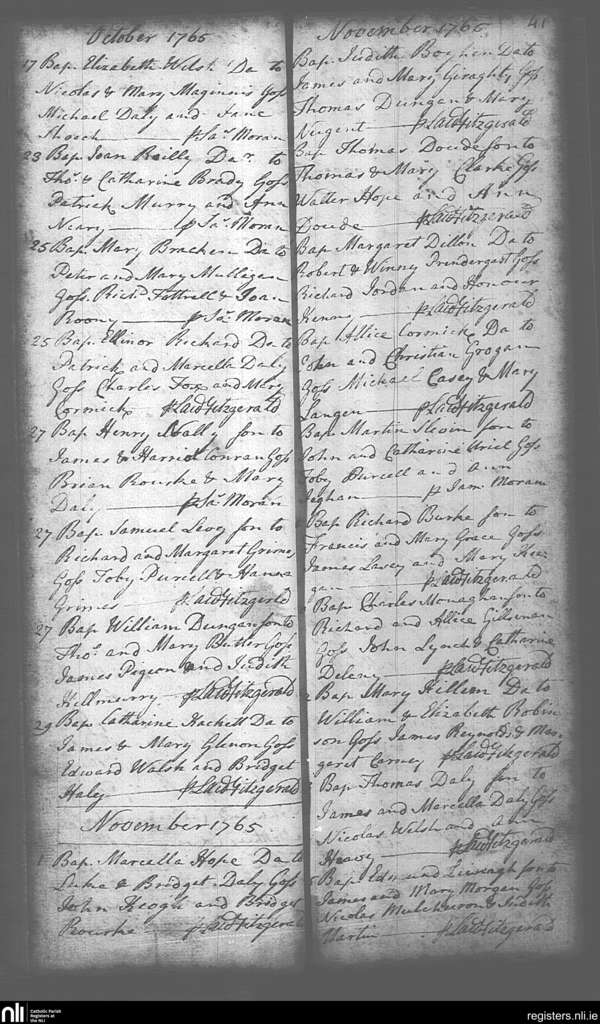 October 1765
17 Bap. Elizabeth Welsh Da to
Nicolas & Mary Maginnis Goss
Michael Daly and Jane
p Ja.s Moran
23 Bap. Joan Reilly Da.r to
Tho.s & Catharine Brady Goss
Patrick Murry and Ann
Neary p Ja.s Moran
25 Bap. Mary Bracken Da to
Peter and Mary Mullegan
Goss Rich.d Fottrell & Joan
Roony p Ja.s Moran
25 Bap. Ellinor Richard Da to
Patrick and Marcella Daly
Goss Charles Fox and Mary
Cormick p Laud Fitzgerald
27 Bap. Henry Nally son to
James & Harriot Conran Goss
Brian Rourke & Mary
Daly p Ja.s Moran
27 Bap. Samuel Levy son to
Richard and Margaret Grimes
Goss Toby Purcell & Hanna
Grimes p Laud Fitzgerald
27 Bap. William Dungan son to
Tho.s and Mary Butler Goss
James Pigeon and Judith
Killmurry p Laud Fitzgerald
29 Bap. Catharine Hackett Da to
James & Mary Glenon Goss
Edward Walsh and Bridget
Haly p Laud Fitzgerald
November 1765
1 Bap. Marcella Hope Da to
Luke & Bridget Daly Goss
John Keogh and Bridget
Rourke p Laud Fitzgerald
November 1765 41
Bap. Judith Boehen Da to
James and Mary Geraghty Goss
Thomas Dungan & Mary
Nugent p Laud Fitzgerald
Bap. Thomas Doude son to
Thomas & Mary Clarke Goss
Walter Hope and Ann
Doude p Laud Fitzgerald
Bap. Margaret Dillon Da to
Robert & Winny Prendergast Goss
Richard Jordan and Honour
Kenny p Laud Fitzgerald
Bap. Allice Cormick Da to
John and Christian Grogan
Goss Michael Casey & Mary
Langen p Laud Fitzgerald
Bap. Martin Slevin son to
John and Catharine Uriel Goss
Toby Purcell and Ann
Jeghan p Jam Moran
Bap. Richard Burke son to
Francis and Mary Grace Goss
James Lasey and Mary
p Laud Fitzgerald
Bap. Charles Monaghan son to
Richard and Allice Gillsenan
Goss John Lynch & Catharine
Deleny p Laud Fitzgerald
Bap. Mary Killem Da to
William & Elizabeth Robin
son Goss James Reynolds & Mar
garet Carney p Laud Fitzgerald
Bap. Thomas Daly son to
James and Marcella Daly Goss
Nicolas Welsh and Ann
Heavy p Laud Fitzgerald
Bap. Edmund son to
James and Mary Morgan Goss
Nicolas Mulchroon & Judith
Martin p Laud Fitzgerald
nli Catholic Parish
Registers at
the NLI
registers.nli.ie